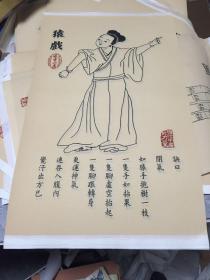 猿戲
訣曰
閉氣
如猿手抱樹一枝
一隻手如拈果
一隻腳虛空抬起
一隻腳跟轉身
更運神氣
連吞入腹內
覺汗出方已